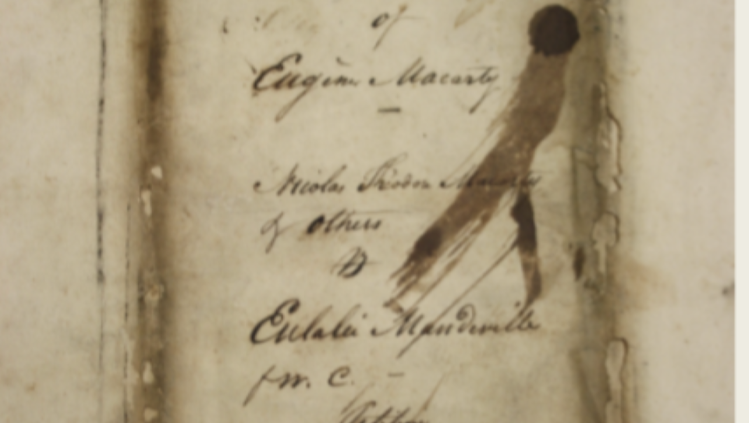 of
Eugène Macarty
Nicolas Théodore Macarty
& others
vs
Eulalie Mandeville
f. w. c. -